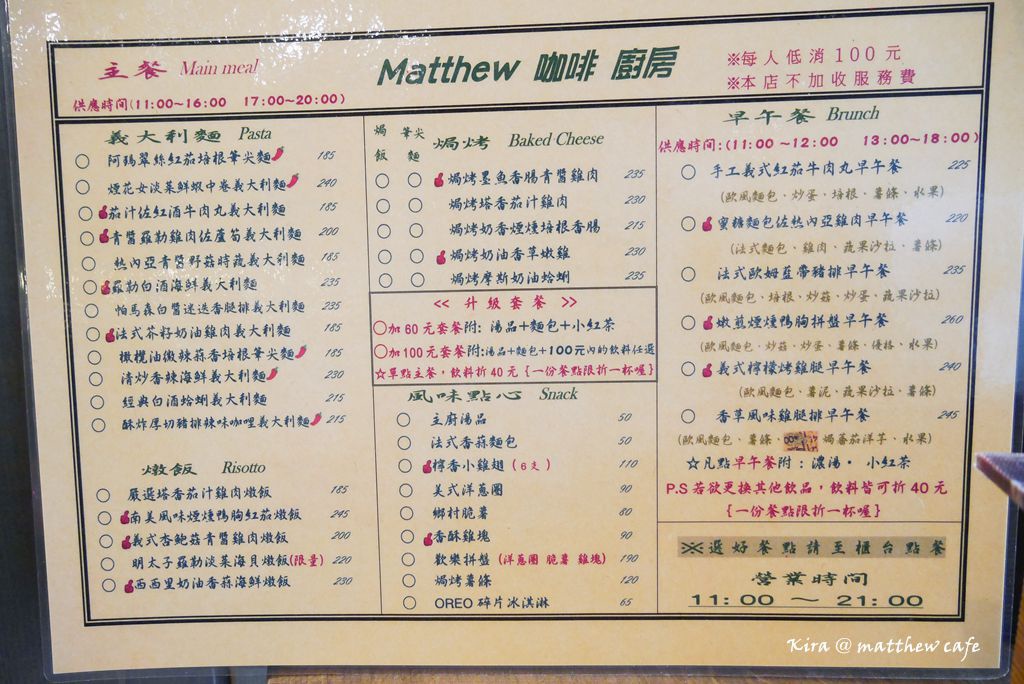 主餐 Main meal
供應時間(11:00~16:00 17:00~20:00)
Matthew 咖啡 廚房
※每人低消100元
※本店不加收服務費
義大利麵 Pasta
阿瑪翠絲紅茄培根筆尖麵 185
煙花女淡菜鮮蝦中卷義大利麵 240
茄汁佐紅酒牛肉丸義大利麵 185
青醬羅勒雞肉佐蘆筍義大利麵 200
熱內亞青醬野菇時蔬義大利麵 185
羅勒白酒海鮮義大利麵 235
帕馬森白醬迷迭香腿排義大利麵 235
法式芥籽奶油雞肉義大利麵 185
橄欖油微辣蒜香培根筆尖麵 185
清炒香辣海鮮義大利麵 230
經典白酒蛤蜊義大利麵 215
酥炸厚切豬排辣味咖哩義大利麵 215
燉飯 Risotto
嚴選塔香茄汁雞肉燉飯 185
南美風味煙燻鴨胸紅茄燉飯 245
義式杏鮑菇青醬雞肉燉飯 200
明太子羅勒淡菜海貝燉飯(限量) 220
西西里奶油香蒜海鮮燉飯 230
焗飯 筆尖麵 焗烤 Baked Cheese
焗烤墨魚香腸青醬雞肉 235
焗烤塔香茄汁雞肉 230
焗烤奶香煙燻培根香腸 215
焗烤奶油香草嫩雞 230
焗烤摩斯奶油蛤蜊 235
<< 升級套餐 >>
○加60元套餐附: 湯品+麵包+小紅茶
○加100元套餐附:湯品+麵包+100元內的飲料任選
☆單點主餐,飲料折40元{一份餐點限折一杯喔}
風味點心 Snack
主廚湯品 50
法式香蒜麵包 50
檸香小雞翅(6支) 110
美式洋蔥圈 90
鄉村脆薯 80
香酥雞塊 90
歡樂拼盤(洋蔥圈 脆薯 雞塊) 190
焗烤薯條 120
OREO 碎片冰淇淋 65
早午餐 Brunch
供應時間:(11:00 ~12:00 13:00~18:00)
手工義式紅茄牛肉丸早午餐 225
(歐風麵包、炒蛋、培根、薯條、水果)
蜜糖麵包佐熱內亞雞肉早午餐 220
(法式麵包、雞肉、蔬果沙拉、薯條)
法式歐姆蛋帶豬排早午餐 235
(歐風麵包、培根、炒菇、炒蛋、蔬果沙拉)
嫩煎煙燻鴨胸拼盤早午餐 260
(歐風麵包、炒菇、炒蛋、薯條、優格、水果)
義式檸檬烤雞腿早午餐 240
(歐風麵包、薯泥、蔬果沙拉、薯條)
香草風味雞腿排早午餐 245
(歐風麵包、薯條、焗蕃茄洋芋、水果)
☆凡點早午餐附:濃湯· 小紅茶
P.S若欲更換其他飲品,飲料皆可折40元
{一份餐點限折一杯喔}
※選好餐點請至櫃台點餐
營業時間
11:00 ~ 21:00
Kira @ matthew cafe